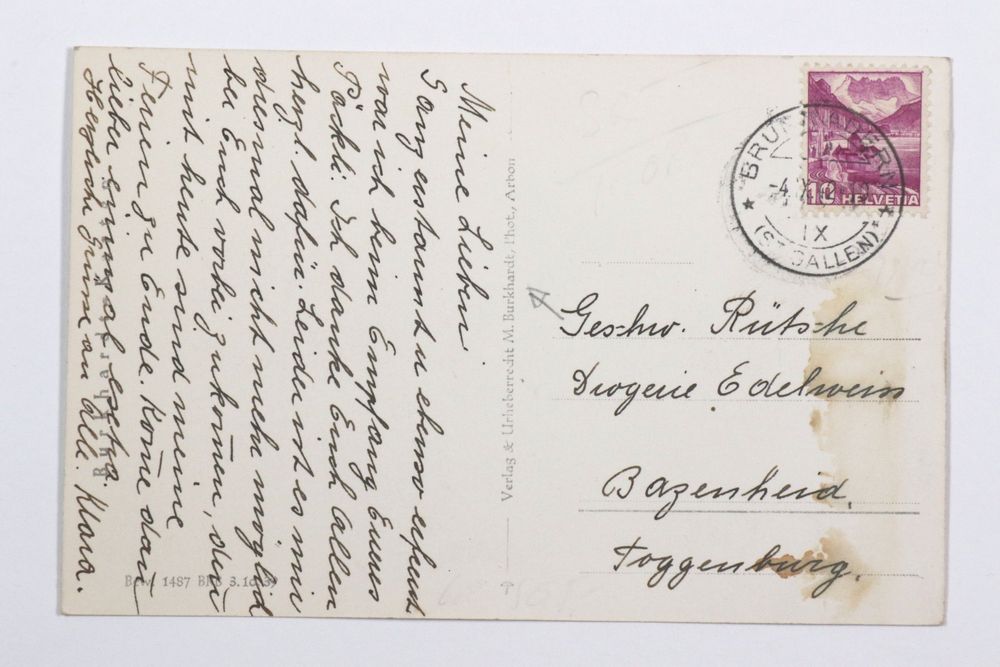 Meine Lieben
Ganz erstaunt u. ebenso erfreut
war ich beim Empfang Eures
Päckli. Ich danke Euch Allen
herzl. dafür. Leider ist es mir
diesmal nicht mehr möglich
bei Euch vorbei zukom̄en, den
mit heute sind meine
Ferien zu Ende. Kom̄e dan̄
lieber einmal extra.
Herzliche Grüsse an Alle. Klara.
Burkhardt
Bew. 1487 BRB 3.10.39
Verlag & Urheberrecht M. Burkhardt, Phot., Arbon
BRUNNADERN
(ST. GALLEN)
IX
10 HELVETIA
Geschw. Rütsche
Drogerie Edelweiss
Bazenheid
Toggenburg.